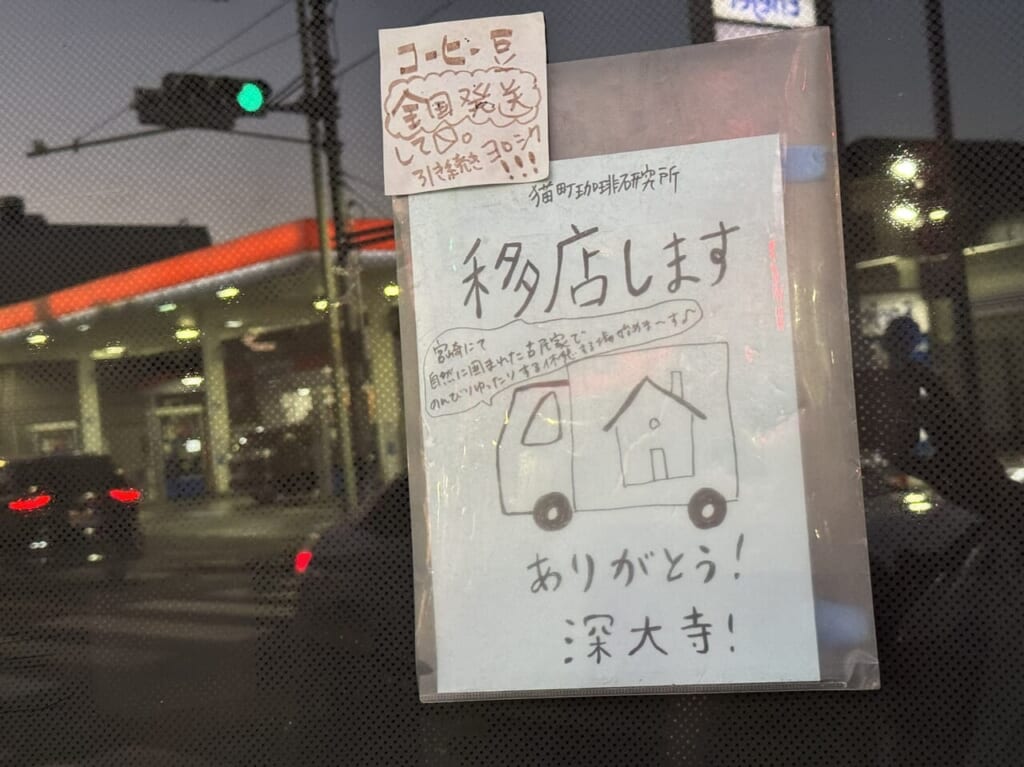 コーヒー豆
全国発送
して〼。
引き続き ヨロシク
!!!
猫町珈琲研究所
移店します
宮崎にて
自然に囲まれた古民家で
のんびりゆったりする休憩する場始めま〜す♪
ありがとう!
深大寺!